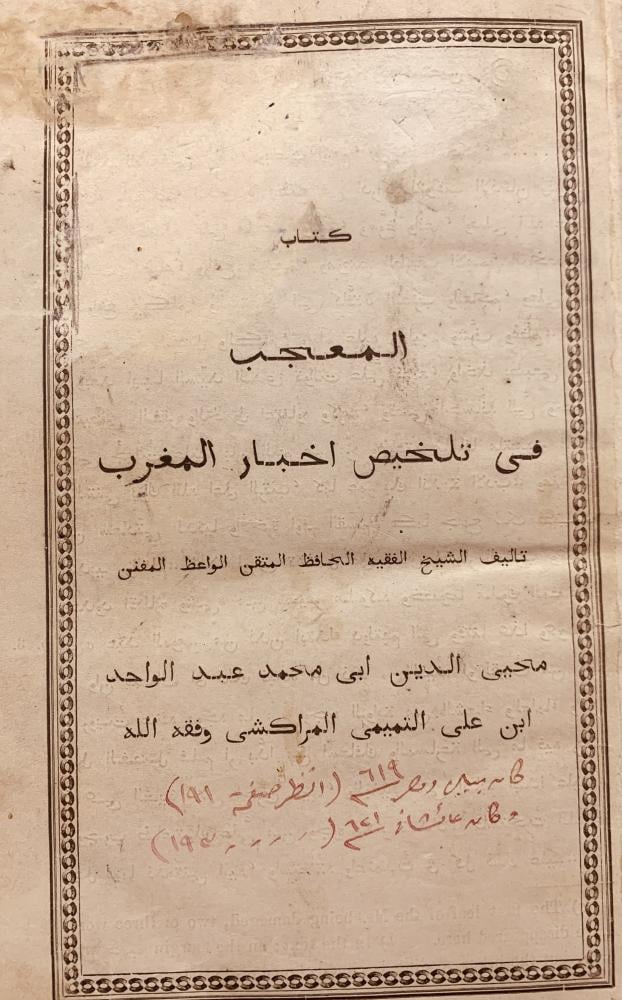 كتاب
المعجب
فى تلخيص اخبار المغرب
تاليف الشيخ الفقيه الحافظ المتقن الواعظ المفنن
محيى الدين ابى محمد عبد الواحد
ابن على التميمى المراكشى وفقه الله
كان ٦١٩ (انظر صفحة ١٩١)
وكان ٦٢١ (